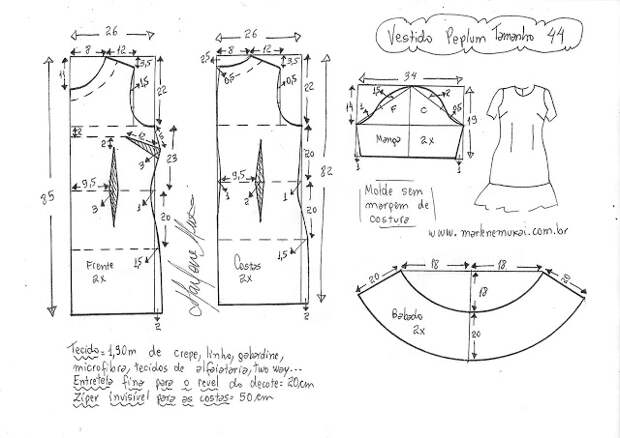 Vestido Peplum Tamanho 44
26
8 12
3,5
11
1,5
22
2
12
2
3
3
9,5
23
3
85
20
1,5
Frente
2x
2
Marlene Mukai
26
8 12
2,5
3,5
0,5
0,5
22
20
9,5
1
3
1
82
20
1,5
Costas
2x
2
34
1,5
2
1
0,5
14
F C
19
Manga 2x
1
1
Molde sem
margem de
costura
www.marlenemukai.com.br
18 18
20
20
18
Babado
2x
20
Tecido = 1,90m de crepe, linho, gabardine,
microfibra, tecidos de alfaiataria, two way...
Entretela fina para o revel do decote = 20cm
Zíper invisível para as costas = 50cm